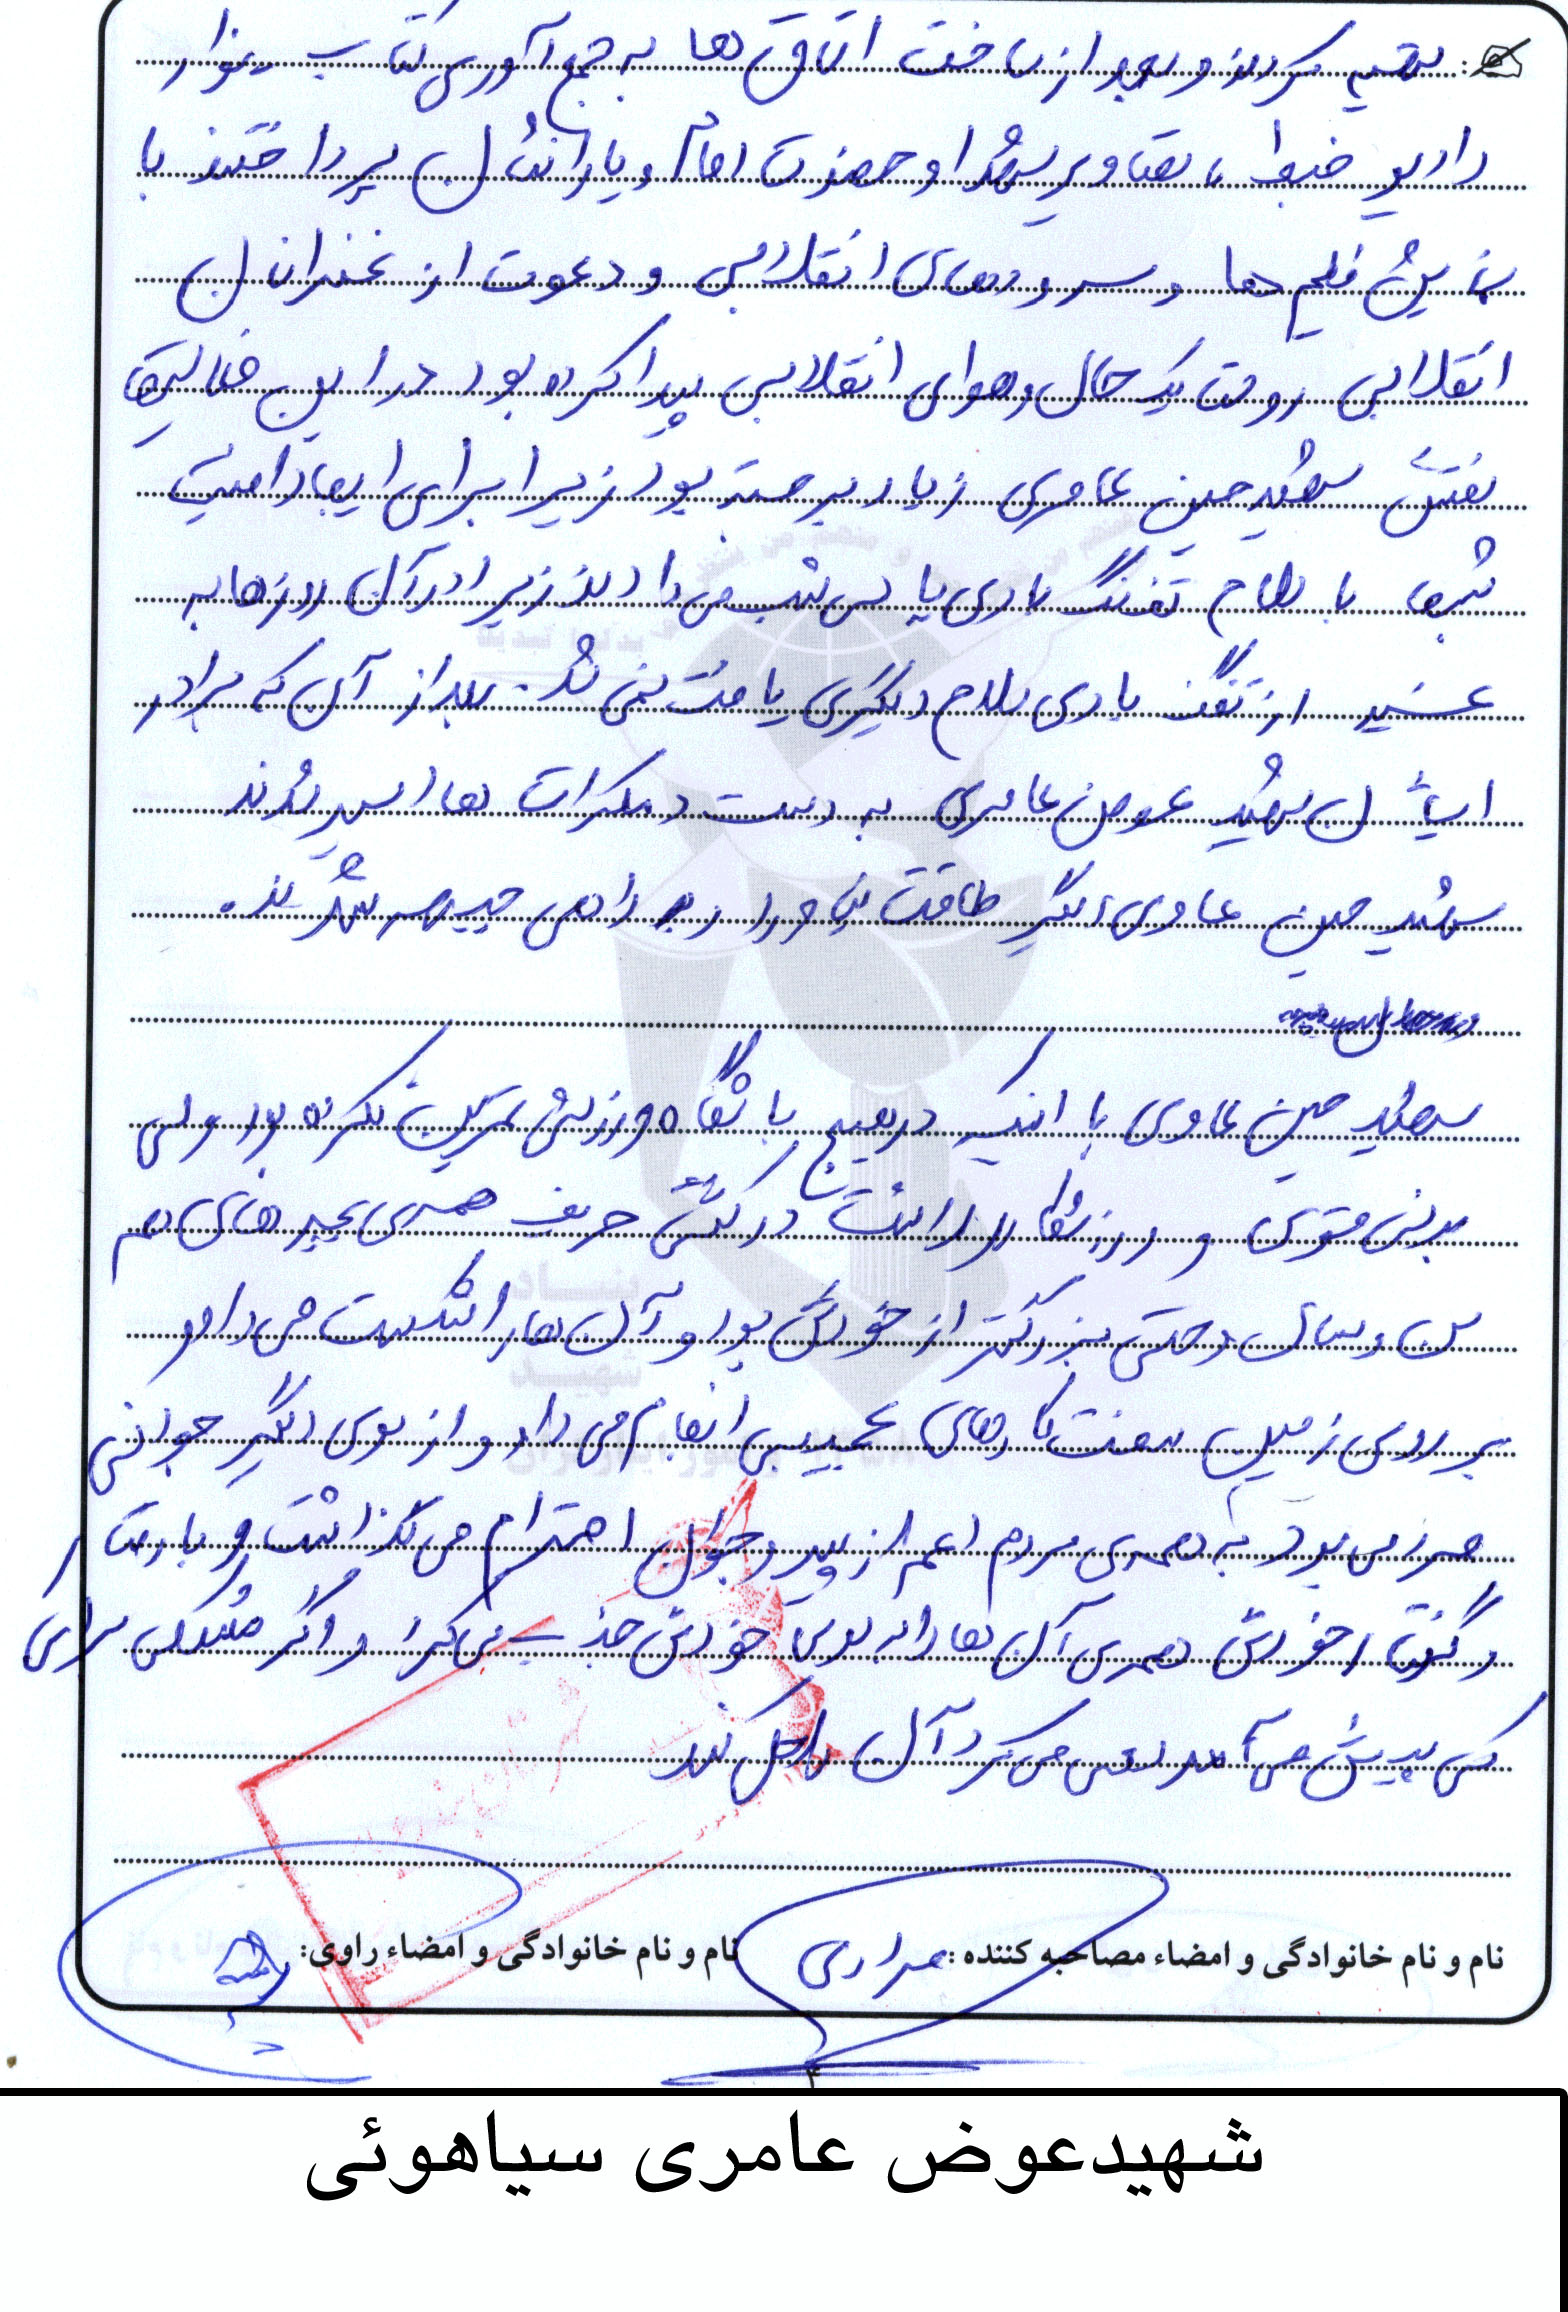 تهیه کردند و بعد از ساخت اتاق ها به جمع آوری کتاب نوار
رادیو ضبط، تصاویر شهدا و حضرت امام و یارانشان پرداختند با
نمایش فیلم ها و سرودهای انقلابی و دعوت از سخنرانان
انقلابی روستا یک حال و هوای انقلابی پیدا کرده بود در این فعالیتها
نقش شهید حسین عامری زیاد برجسته بود زیرا برای ایجاد امنیت
شبها با سلاح تفنگ بادی پاس شب می دادند زیرا در آن روزها به
غیر از تفنگ بادی سلاح دیگری یافت نمی شد. بعد از آن که برادر
ایشان شهید عوض عامری به دست دمکرات ها اسیر شدند
شهید حسین عامری دیگر طاقت نیاورد و راهی جبهه شدند.
شهید حسین عامری با اینکه در هیچ باشگاه ورزشی تمرین نکرده بود ولی
بدنی قوی و ورزشکار داشت در کشتی حریف همه ی بچه های هم
سن و سال و حتی بزرگتر از خودش بود و آن ها را شکست می داد و
بر روی زمین سفت کارهای عجیبی انجام می داد و از سوی دیگر جوانی
بود به همه ی مردم اعم از پیر و جوان احترام می گذاشت و با رفتار
و گفتار خودش همه ی آن ها را به سوی خودش جذب می کرد و اگر مشکلی برای
کسی پیش می آمد سعی می کرد آن را حل کند
نام و نام خانوادگی و امضاء مصاحبه کننده: نام و نام خانوادگی و امضاء راوی:
۴
شهیدعوض عامری سیاهوئی